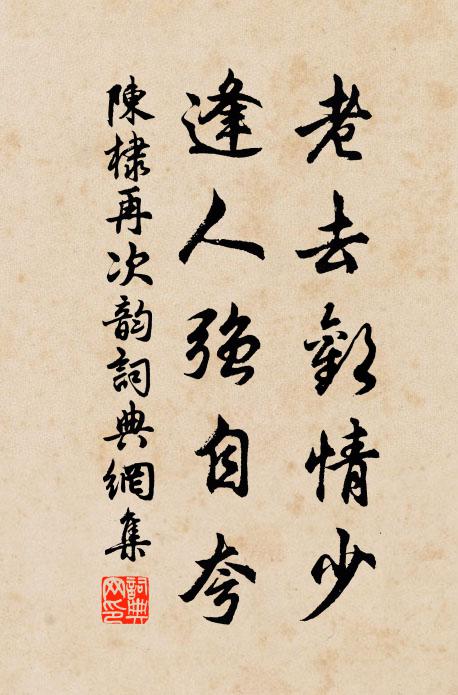 老去歡情少
逢人強自夸
陳棣再次韵詞典網集
詞典網印